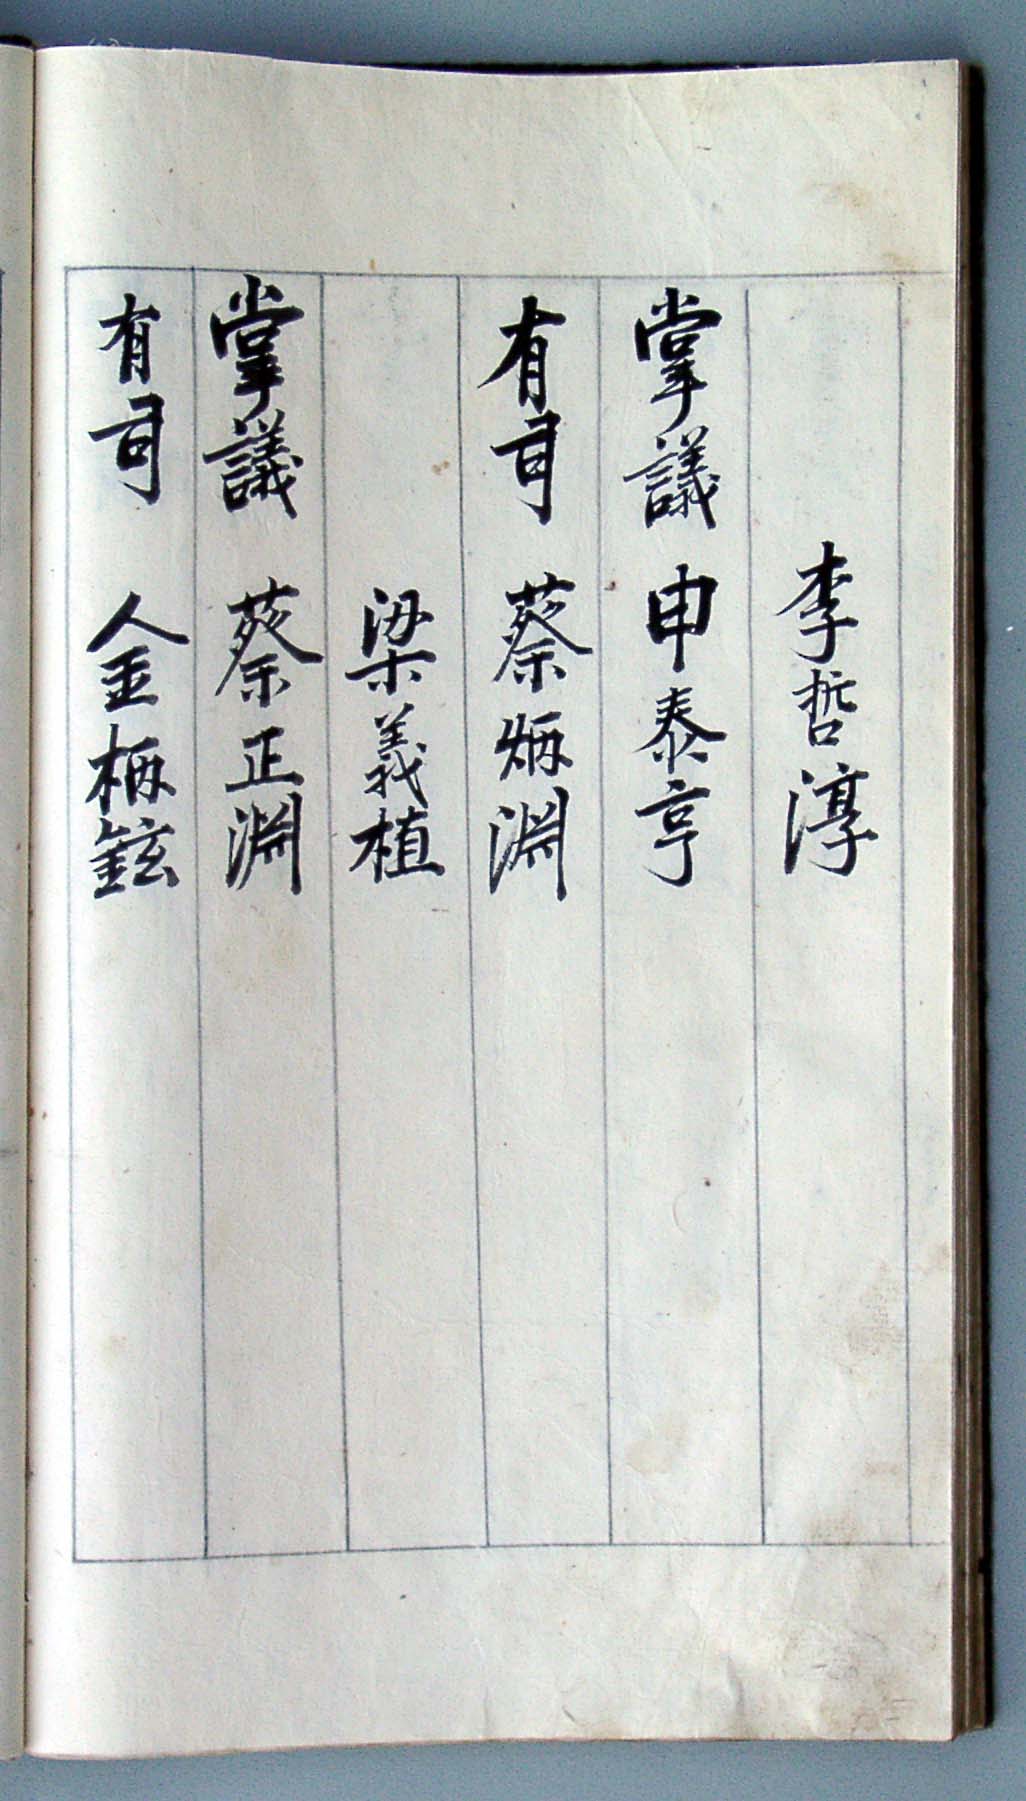 李哲淳
掌議 申泰亨
有司 蔡炳淵
梁義植
掌議 蔡正淵
有司 金柄鉉